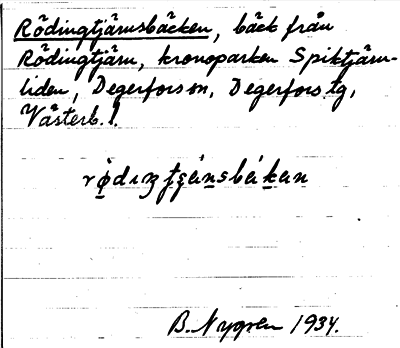 Rödingtjärnsbäcken, bäck från
Rödingtjärn, kronoparken Spiktjärn-
liden, Degerfors sn, Degerfors tg,
Västerb. l.
B. Nygren 1934.